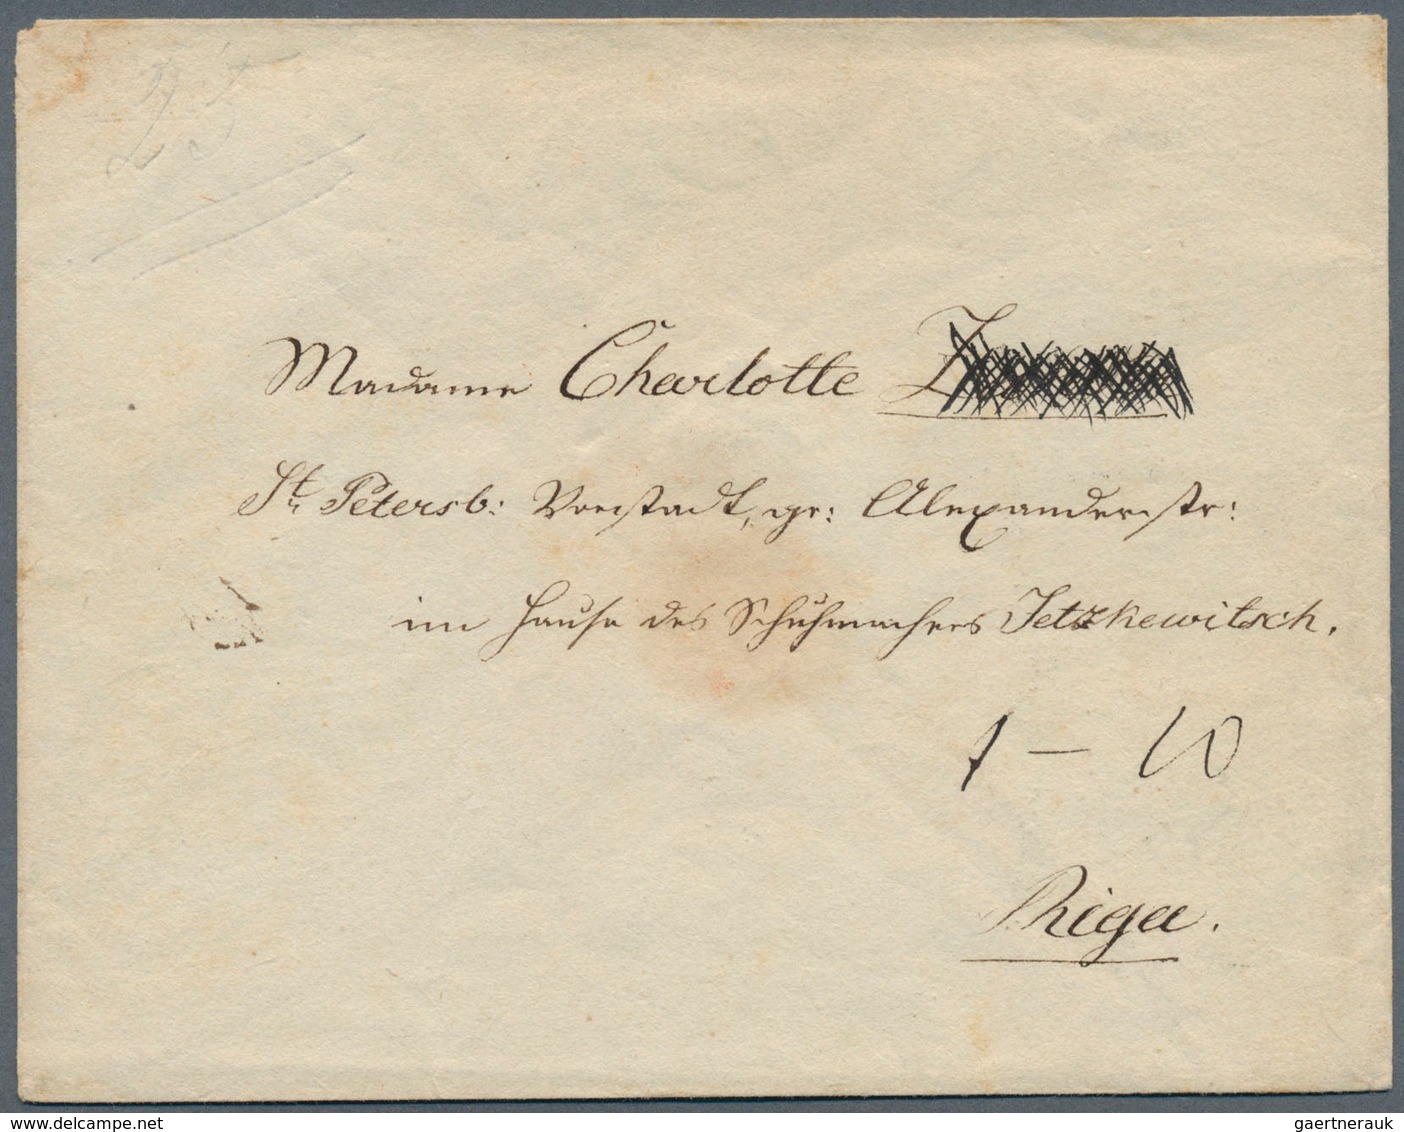 25
Madame Charlotte
St. Petersb: Vorstadt, gr: Alexanderstr:
im Hause des Schuhmachers Jetzkewitsch.
1 — 10
Riga.
www.delcampe.net
gaertnerauk